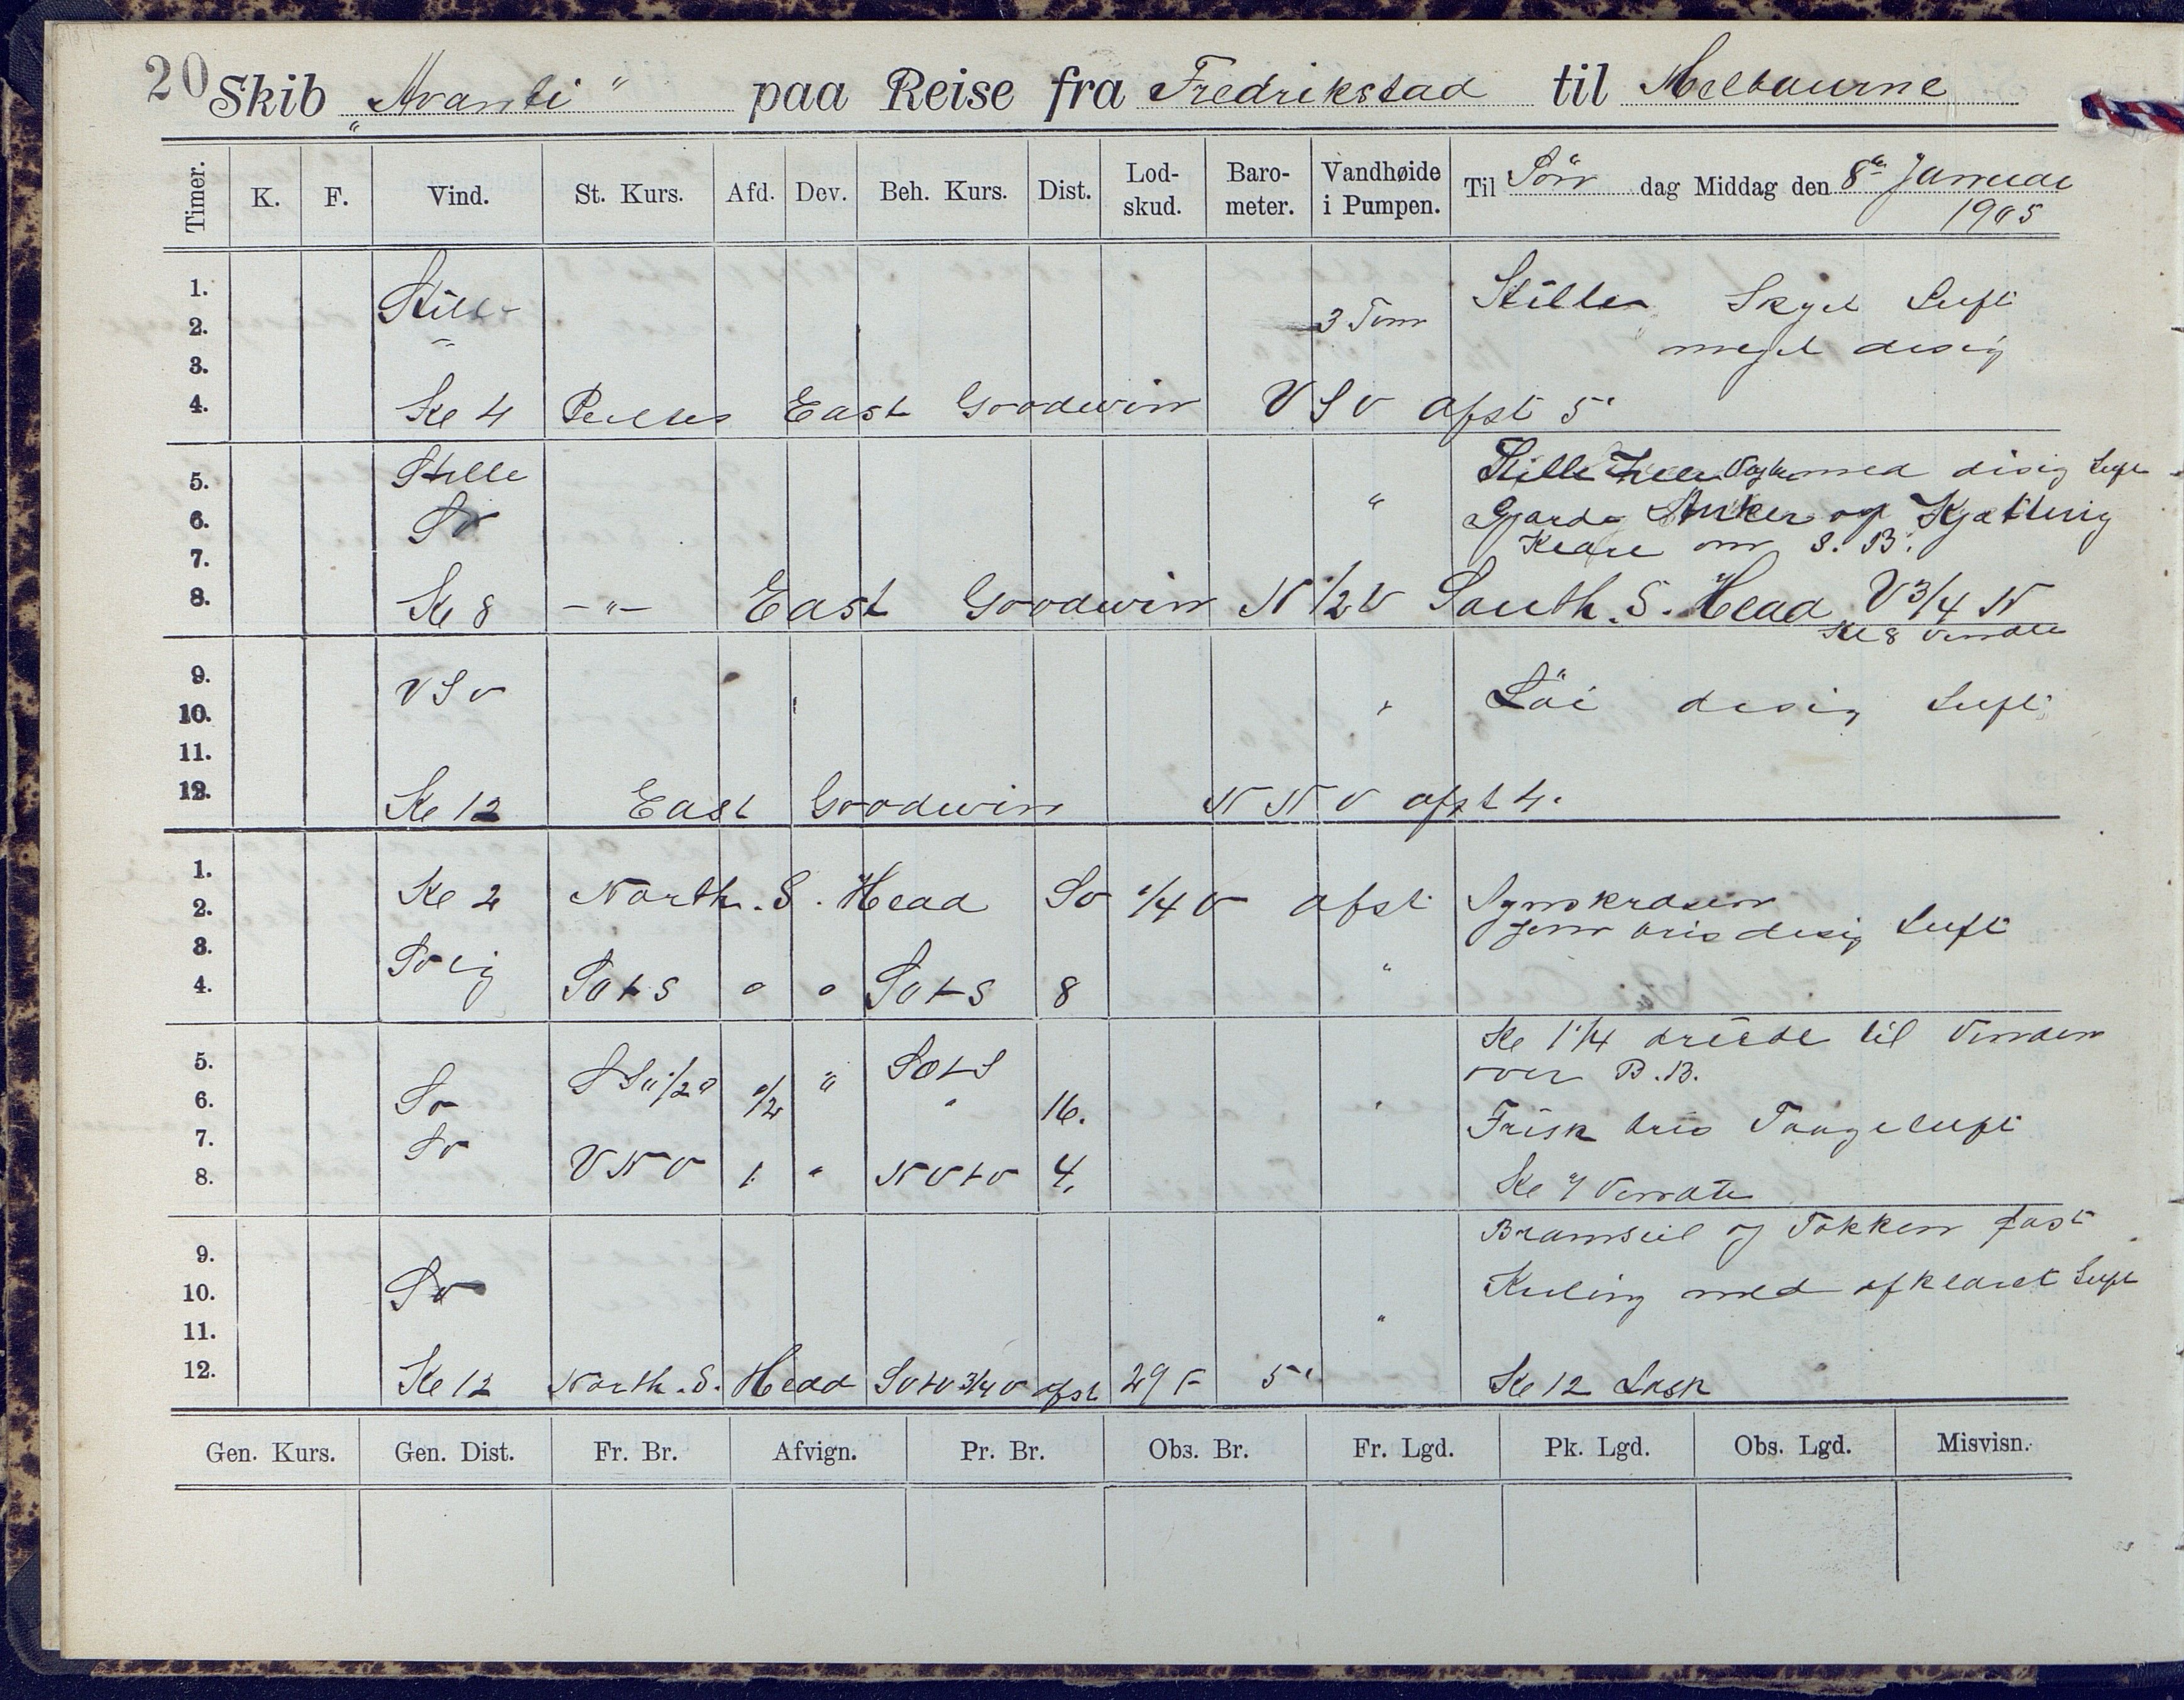 20 Skib „Avanti" paa Reise fra Fredrikstad til Melbourne
Timer. K. F. Vind. St. Kurs. Afd. Dev. Beh. Kurs. Dist. Lod-skud. Baro-meter. Vandhøide i Pumpen. Til Sön dag Middag den 8de Januar
1905
1.
2. Stille 3 Tom Stille Skyet Luft
3. " meget disig
4. Kl 4 Peiltes East Goodwin VSV afst 5'
5. Stille Stille hele Vagten med disig Luft
6. SV " Gjorde Anker og Kjætting
7. Klare om S. B.
8. Kl 8 -"- East Goodwin N 1/2 V South. S. Head V 3/4 N
Kl 8 Vendte
9.
10. VSV " Löi disig Luft
11.
12. Kl 12 East Goodwin NNV afst 4'
1.
2. Kl 2 North. S. Head SV 1/4 V afst Synskredsen
3. SVlig Jevn bris disig Luft
4. SOtS 0 0 SOtS 8 "
5. SSO 1/2 O 1/2 " SOtS Kl 1 1/4 dreide til Vinden
over B.B.
6. SV " 16. "
7. SV Frisk bris Taageluft
8. VNV 1 " NVtV 4. Kl 7 Vendte
9. Bramseil og Tokken fast
10. SV Kuling med afklaret Luft
11. "
12. Kl 12 North. S. Head SVtV 3/4 V afst 29 F 5' Kl 12 Lask
Gen. Kurs. Gen. Dist. Fr. Br. Afvign. Pr. Br. Obs. Br. Fr. Lgd. Pk. Lgd. Obs. Lgd. Misvisn.